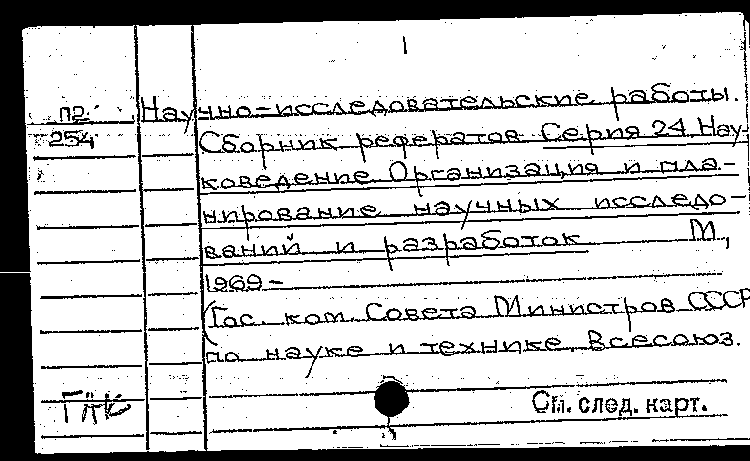 1
П2 Научно-исследовательские работы.
254 Сборник рефератов Серия 24 Нау-
коведение Организация и пла-
нирование научных исследо-
ваний и разработок М,
1969 -
(Гос. ком. Совета Министров СССР
по науке и технике Всесоюз.
См. след. карт.